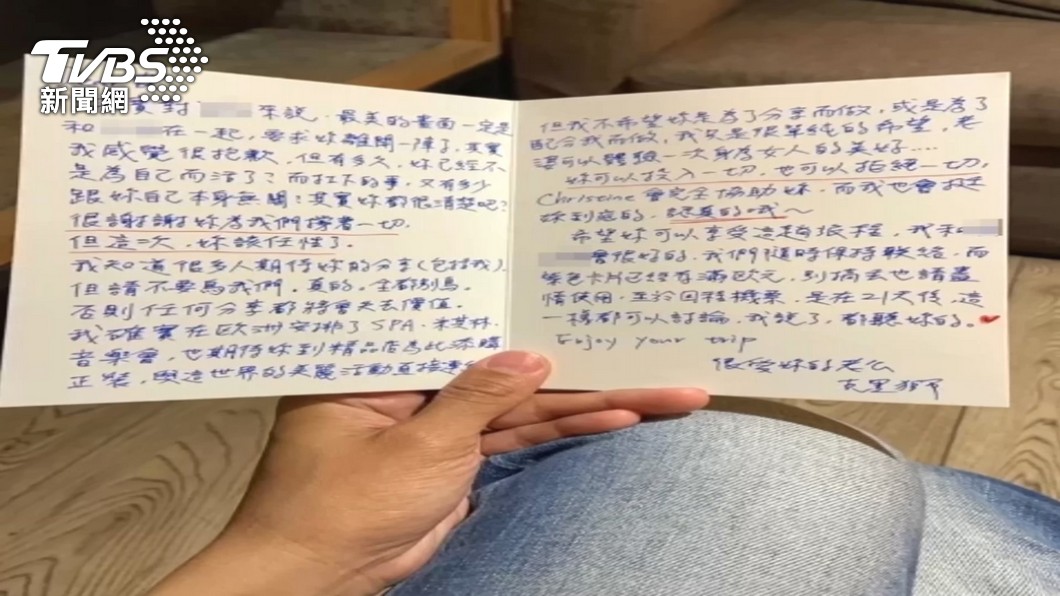 TVBS
新聞網
實對 來說,最美的畫面一定是
和 在一起,要求妳離開一陣子,其實
我感覺很抱歉,但有多久,妳已經不
是為自己而活了?而扛下的事,又有多少
跟妳自己本身無關!其實妳都很清楚吧?
很謝謝妳為我們撐著一切.
但這次,妳該任性了.
我知道很多人期待妳的分享(包括我).
但請不要為我們,真的,全都別為.
否則任何分享都將會失去價值.
我確實在歐洲安排了SPA.米其林.
音樂會,也期待妳到精品店為此添購
正裝,與這世界的美麗活動直接
但我不希望妳是為了分享而做,或是為了
配合我而做,我只是很單純的希望,老
婆可以體驗一次身為女人的美好....
妳可以投入一切,也可以拒絕一切,
Christine 會完全協助妳,而我也會挺
妳到底的,認真的我~
希望妳可以享受這趟旅程,我和
會很好的,我們隨時保持聯絡,而
紫色卡片已經存滿歐元,別搞丟也請盡
情使用,至於回程機票,是在21天後,這
一樣都可以討論,我說了,都聽妳的。
Enjoy your trip
很愛妳的老公